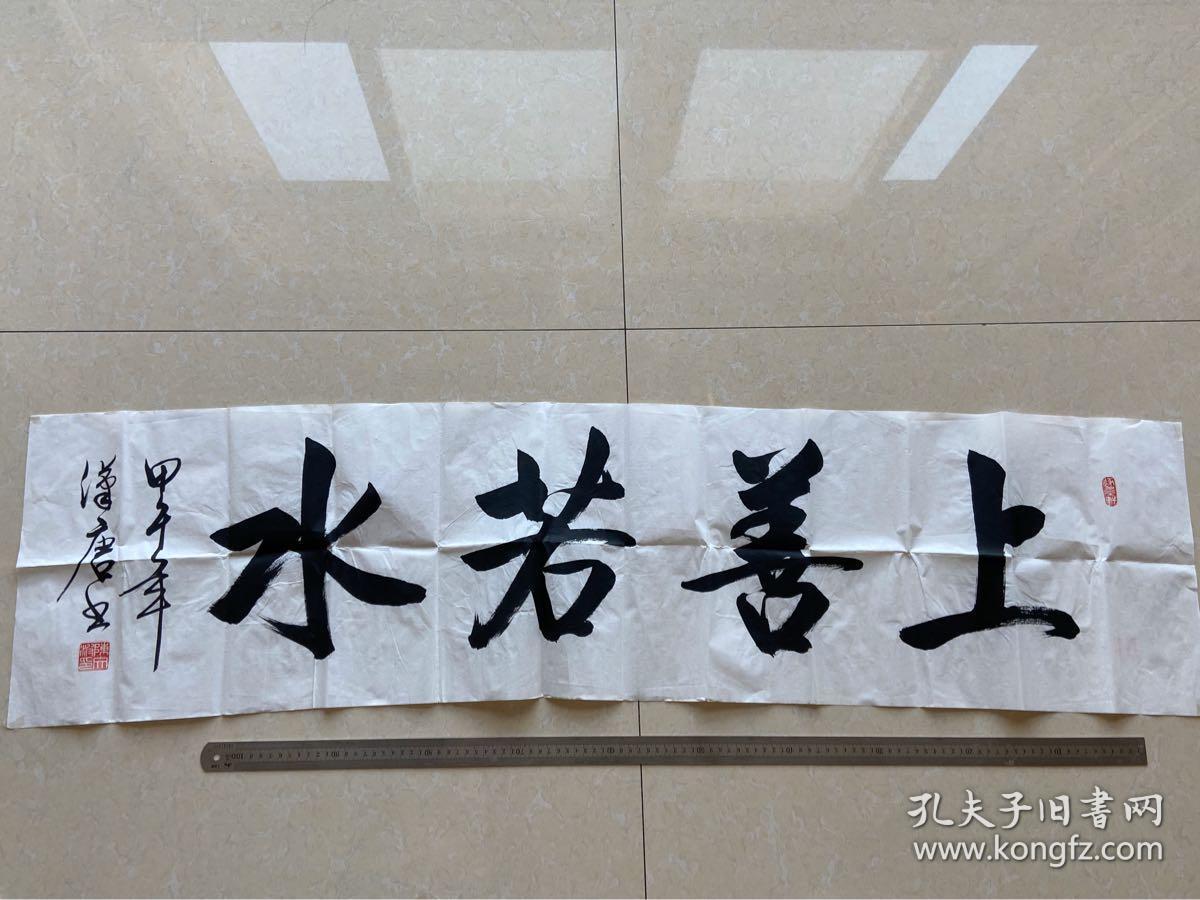 上善若水
甲午年
漢唐书
孔夫子旧書网
www.kongfz.com